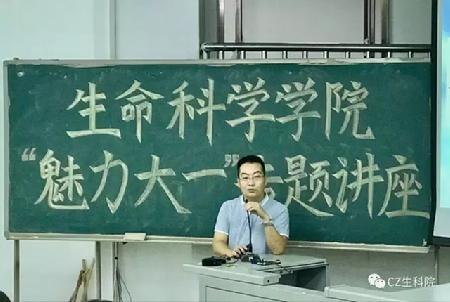 生命科学学院
“魅力大一”主题讲座
CZ生科院